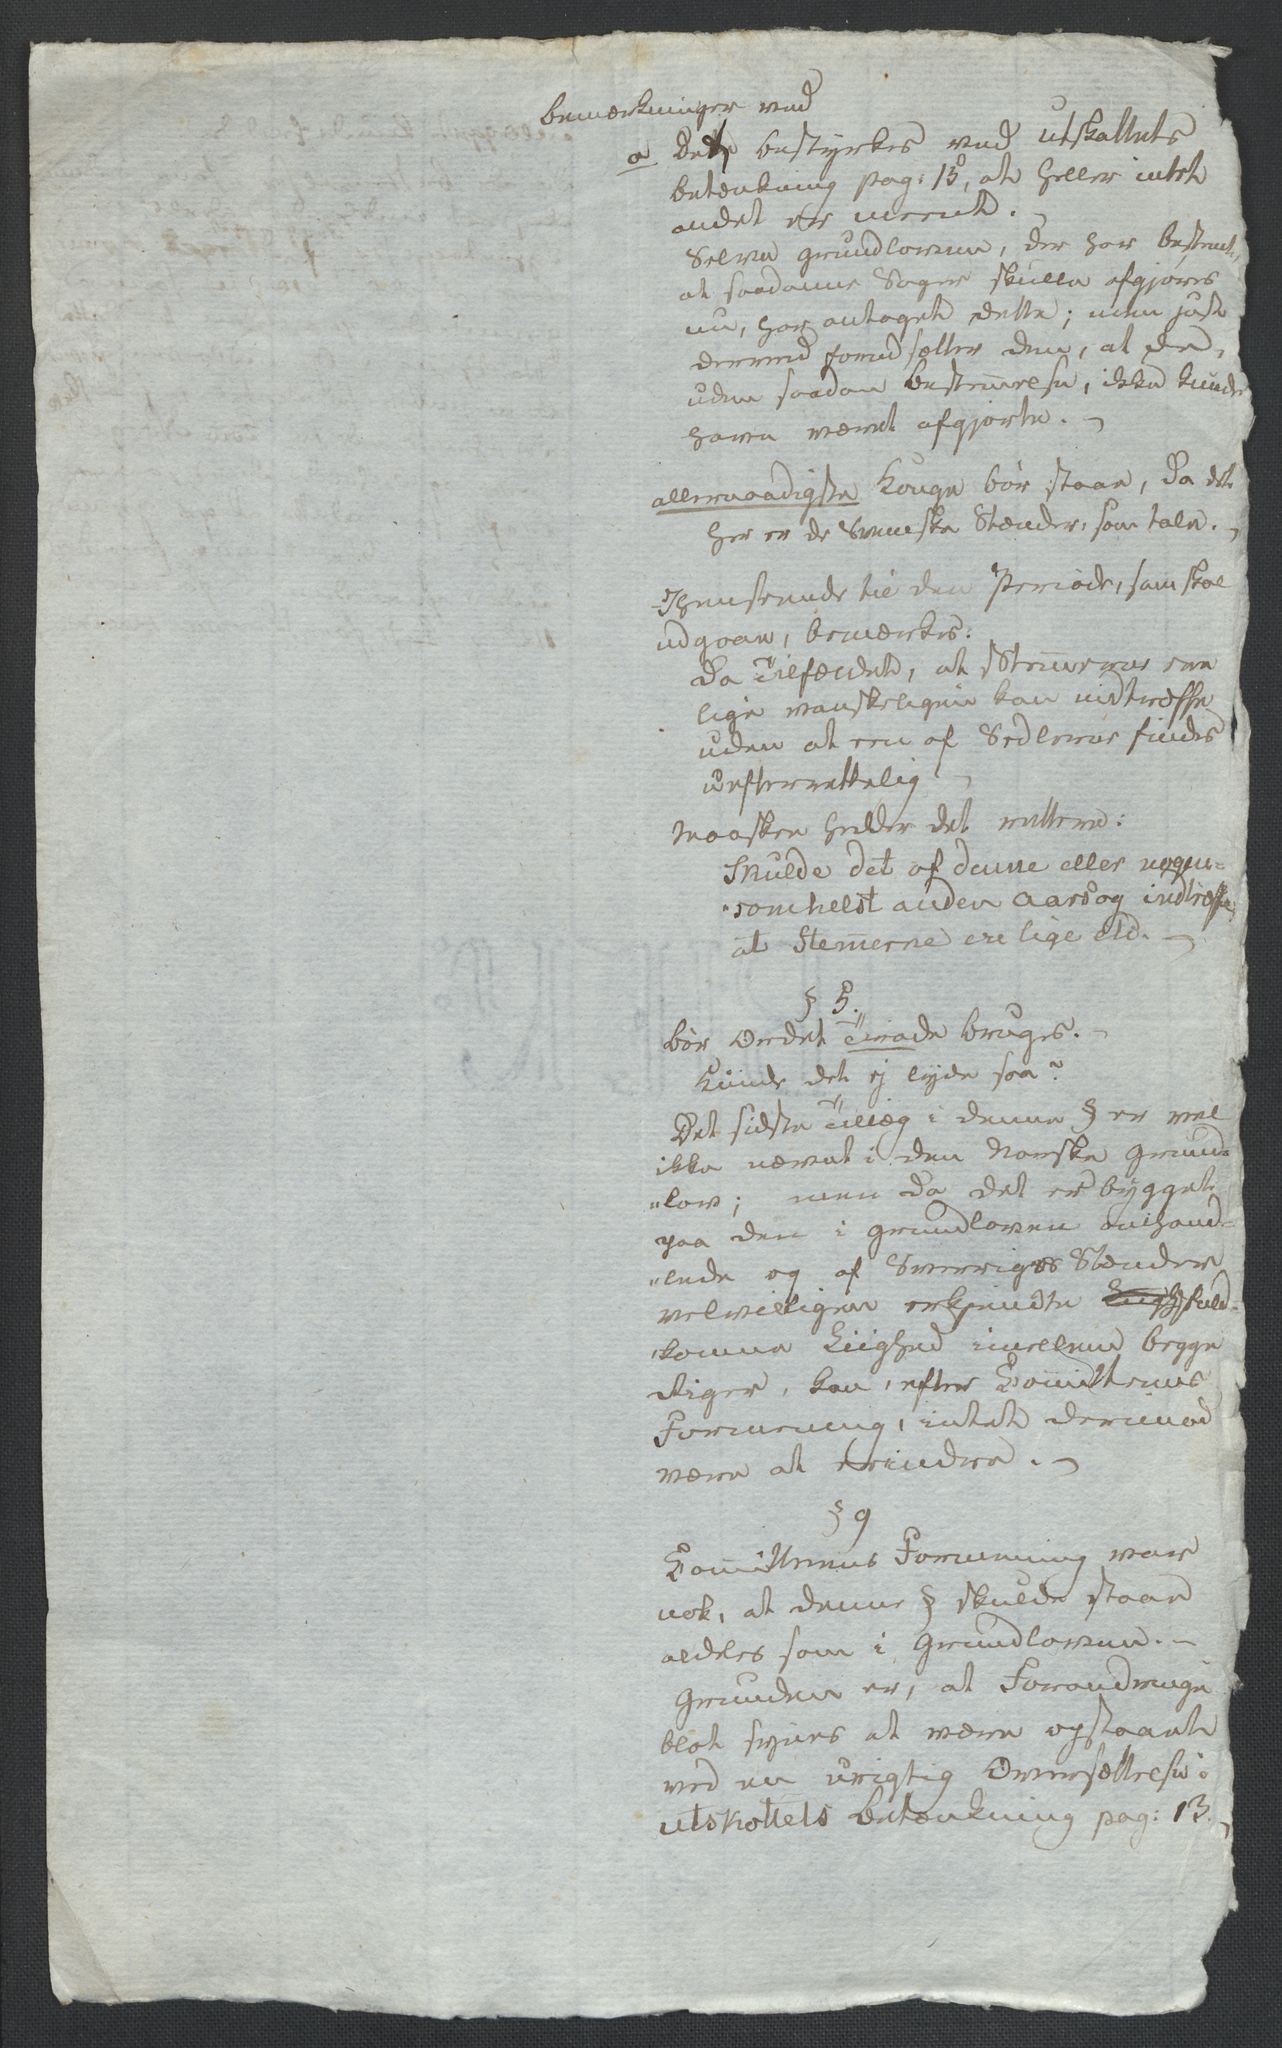 Bemærkninger ved
a Dette bestyrkes ved Utskottets
Betænkning pag: 13, at heller intet
andet er meent. –
Selve Grundloven, der har bestemt,
at saadanne Sager skulle afgjøres
nu, har antaget dette; men just
derved forudsætter den, at de,
uden saadan Bestem̄else, ikke kunde
have været afgjorte. –
allernaadigste Konge bör staae, da det
her er de Svenske Stænder, som tale. –
Ihenseende til den Periode, som skal
udgaae, bemærkes:
Da Tilfældet, at Stem̄erne ere
lige vanskeligen kan indtreffe
uden at een af Sedlerne findes
uefterrettelig –
Maaskee heller det rettere:
Skulde det af denne eller nogen=
"somhelst anden Aarsag indtreffe,
at Stem̄erne ere lige etc. –
§ 5.
bör Ordet Tirade bruges. –
Kunde det ej lyde saa?
Det sidste Tillæg i denne § er vel
ikke nævnt i den Norske Grund=
"lov; men da det er bygget
paa den i Grundloven omhand=
"lede og af Sverriges Stænder
velvilligen erkjendte fuld=
"komne Liighed imellem begge
Riger, kan, efter Com̄itteens
Formening, intet derimod
være at erindre. –
§ 9
Com̄itteens Formening var
nok, at denne § skulde staae
aldeles som i Grundloven. –
Grunden er, at Forandringen
blot synes at være opstaaet
ved en urigtig Oversættelse i
Utskottets Betænkning pag: 13. –